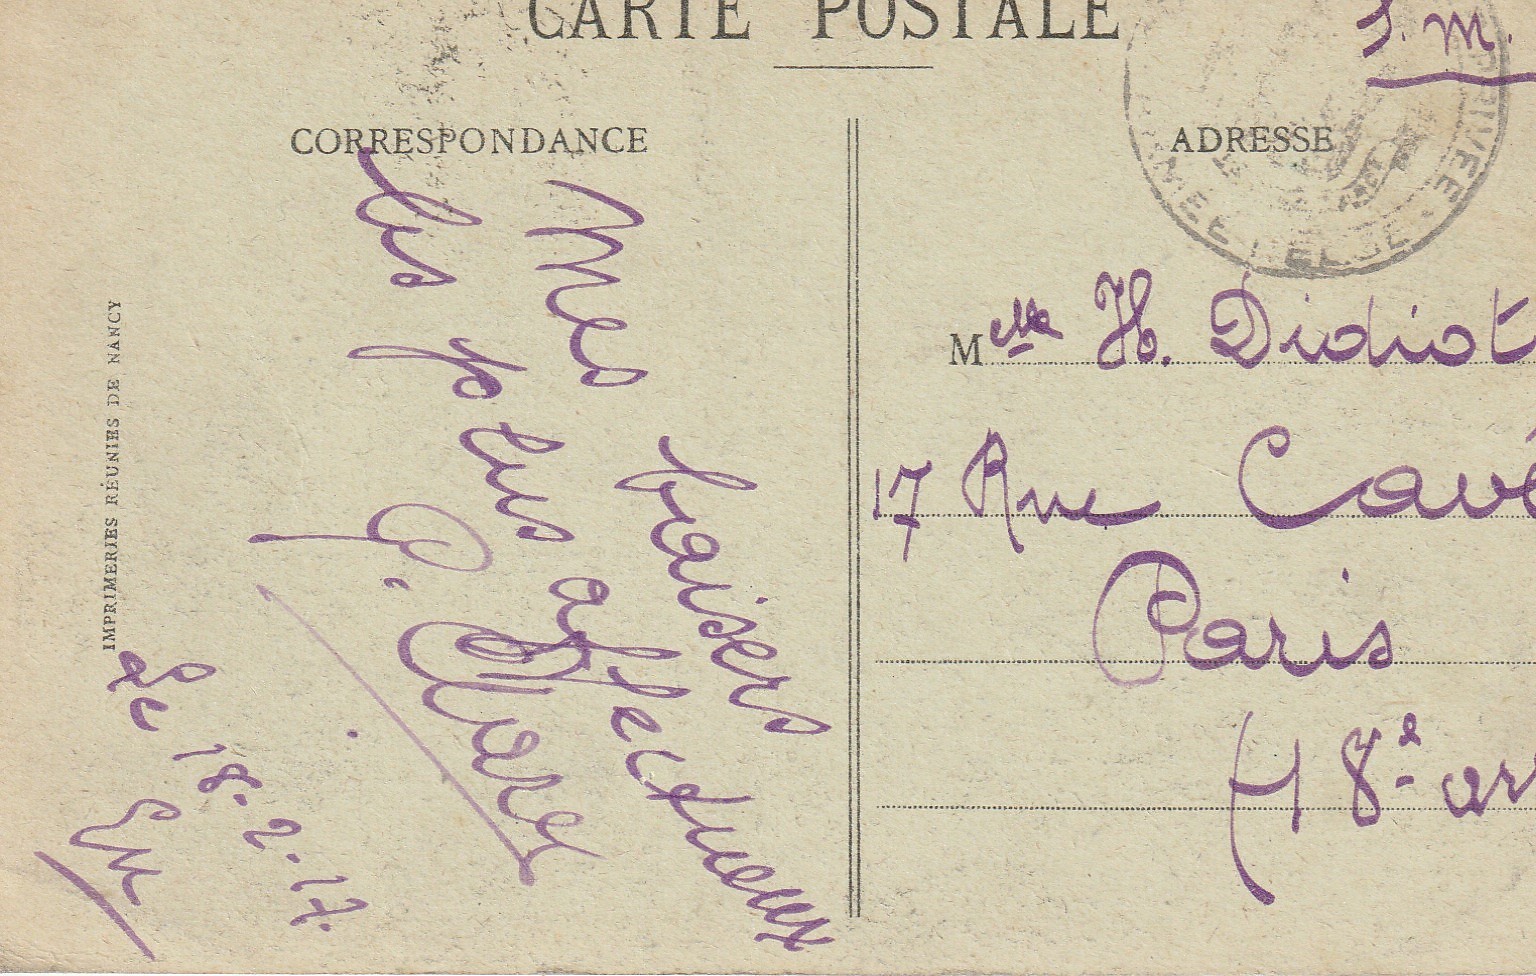 CARTE POSTALE
S.M.
CORRESPONDANCE
ADRESSE
Mes baisers
les plus affectueux
Le 18-2-17.
IMPRIMERIES RÉUNIES DE NANCY
Melle H. Didiot
17 Rue Cavé
Paris
18e arr